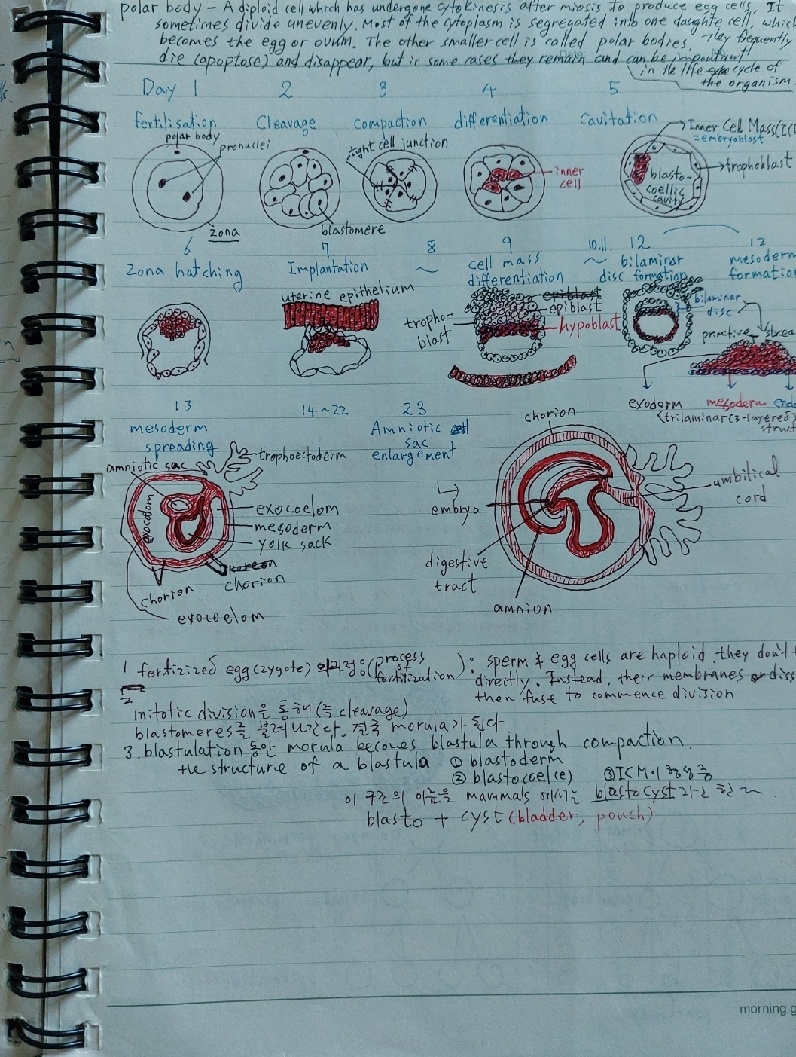 polar body - A diploid cell which has undergone cytokinesis after miosis to produce egg cells. It
sometimes divide unevenly. Most of the cytoplasm is segregated into one daughte cell, which
becomes the egg or ovum. The other smaller cell is called polar bodies. They frequently
die (apoptose) and disappear, but in some cases they remain and can be important
in the life cycle of
the organism
Day 1 2 3 4 5
fertilisation Cleavage compaction differentiation cavitation
polar body
pronuclei
zona
blastomere
tight cell junction
inner
cell
Inner Cell Mass
=embryoblast
trophoblast
blasto-
coelic
cavity
6 7 8 9 10,11 12 12
Zona hatching Implantation ~ cell mass
differentiation ~ bilaminar
disc formation mesoderm
formation
uterine epithelium
tropho-
blast
epiblast
epiblast
hypoblast
bilaminar
disc
primitive strea
exoderm mesoderm endo
(trilaminar(3-layered)
struct
13 14~22 23
mesoderm
spreading
Amniotic
sac
enlargement
amniotic sac
trophoectoderm
exocoelom
exocoelom
mesoderm
yolk sack
chorion
chorion
exocoelom
chorion
embryo
umbilical
cord
digestive
tract
amnion
1 fertizized egg (zygote) 의 과정은 (process of fertilization) : sperm & egg cells are haploid they don't
directly. Instead, their membranes diss
then fuse to commence division
2
mitotic division을 통해 (즉 cleavage)
blastomeres를 늘려나간다. 결국 morula가 된다
3. blastulation 동안 morula becomes blastula through compaction.
the structure of a blastula ① blastoderm
② blastocoel(e) ③ ICM이 형성중
이 구간의 이름을 mammals 에서는 blastocyst라고 함 ~
blasto + cyst (bladder, pouch)
morning g